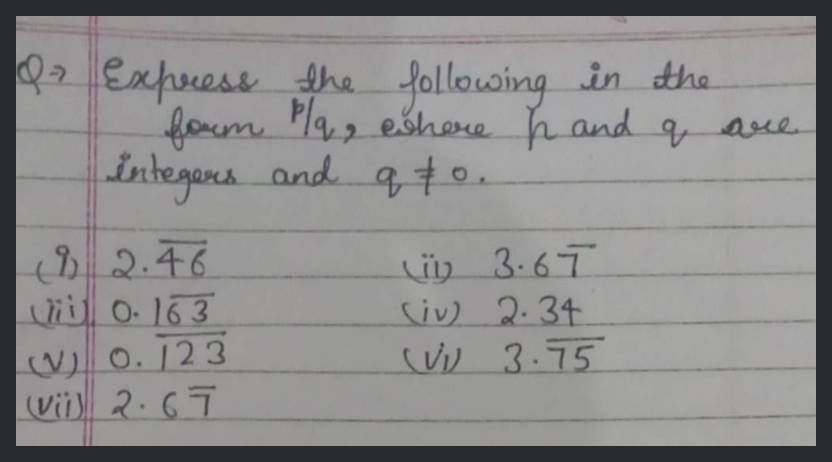 Q→ Express the following in the
form p/q, where p and q are
integers and q ≠ 0.
(i) 2.4̅6̅ (ii) 3.67̅
(iii) 0.16̅3̅ (iv) 2.34
(v) 0.1̅2̅3̅ (vi) 3.7̅5̅
(vii) 2.67̅